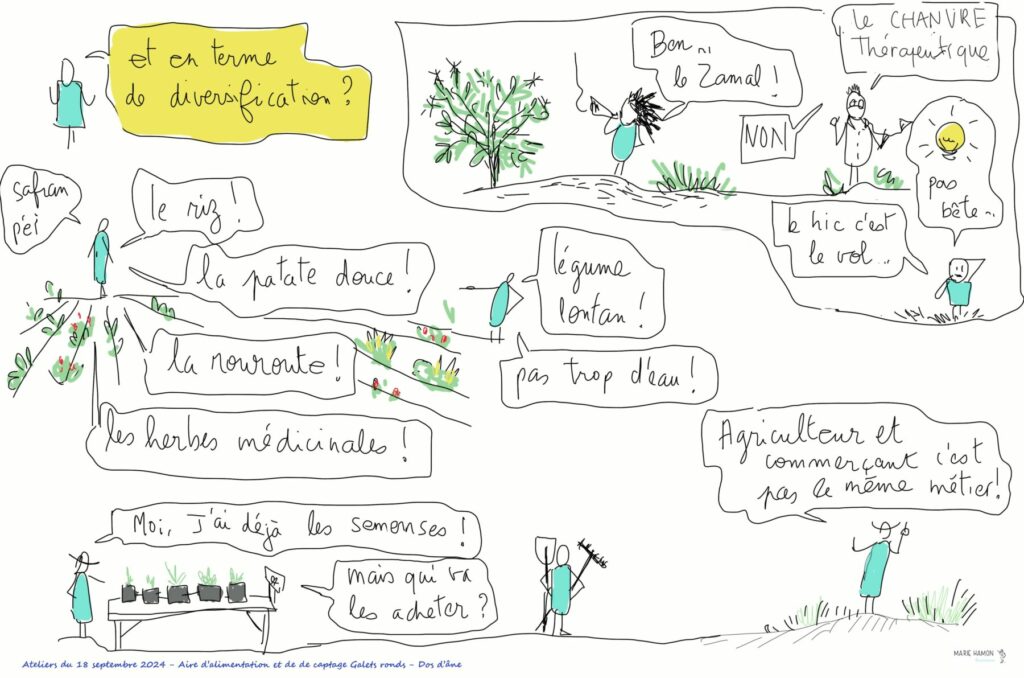 et en terme
de diversification ?
Ben..
le Zamal !
le CHANVRE
Thérapeutique
NON
pas
bête..
le hic c'est
le vol...
safran
péi
le riz !
la patate douce !
légume
lontan !
la rouroute !
pas trop d'eau !
les herbes médicinales !
Agriculteur et
commerçant c'est
pas le même métier !
Moi, J'ai déjà les semonses !
mais qui va
les acheter ?
Ateliers du 18 septembre 2024 - Aire d'alimentation et de de captage Galets ronds - Dos d'âne
MARIE HAMON